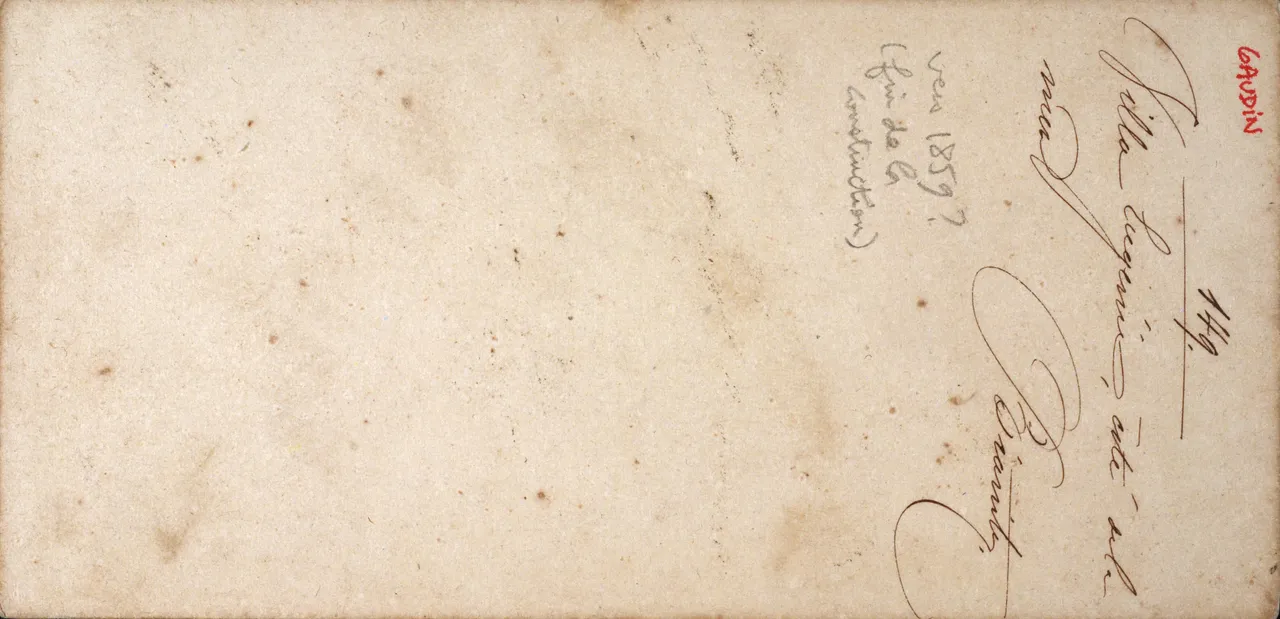 GAUDIN
149.
Villa Eugénie, côté de la
mer
Biarritz.
vers 1859?
(fin de la
construction)